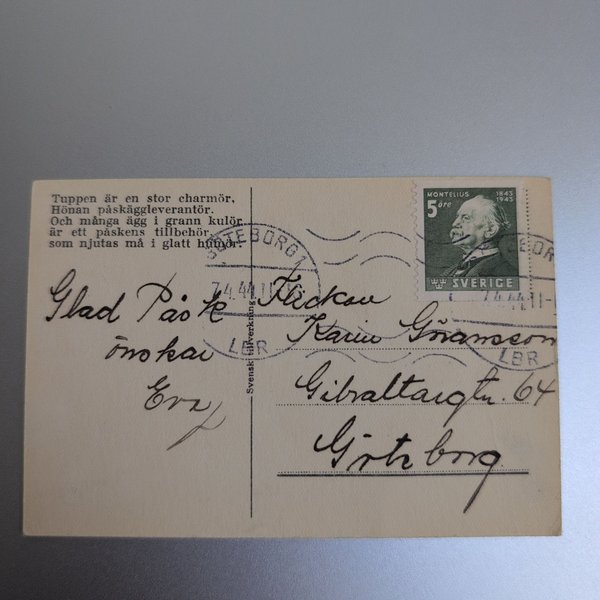 Tuppen är en stor charmör,
Hönan påskäggleverantör.
Och många ägg i grann kulör
är ett påskens tillbehör,
som njutas må i glatt humör.
Glad Påsk
önskar
Eva
Svensk tillverkning
MONTELIUS 1843 1943
5 öre
SVERIGE
GÖTEBORG 1
7.4.44.11
LBR
Flickan
Karin Göransson
Gibraltargtn. 64
Göteborg
7.4.44.11-
LBR